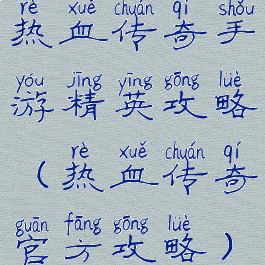 rè xuè chuán qí shǒu
热血传奇手
yóu jīng yīng gōng lüè
游精英攻略
rè xuě chuán qí
（热血传奇
guān fāng gōng lüè
官方攻略）